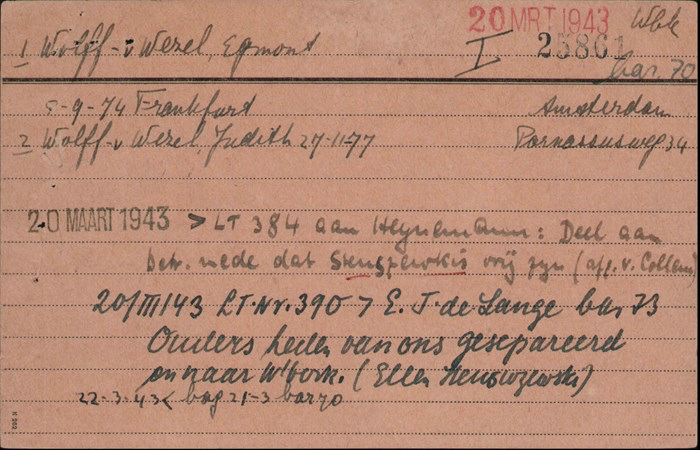 20 MRT 1943 Wbk
1 Wolff-v Wezel, Egmont I 23861
bar. 70
5-9-74 Frankfurt Amsterdam
2 Wolff-v Wezel, Judith 27-11-77 Parnassusweg 34
20 MAART 1943 > LT 384 aan Heynemann: Deel aan
betr. mede dat Stenszewskis vrij zyn (aff. v. Collem)
20/III/43 LT.Nr. 390 > E. J. de Lange bar 73
Ouders heden van ons gesepareerd
en naar W'bork. (Ellen Stenszewski)
22-3-43 < bag 21-3 bar 70